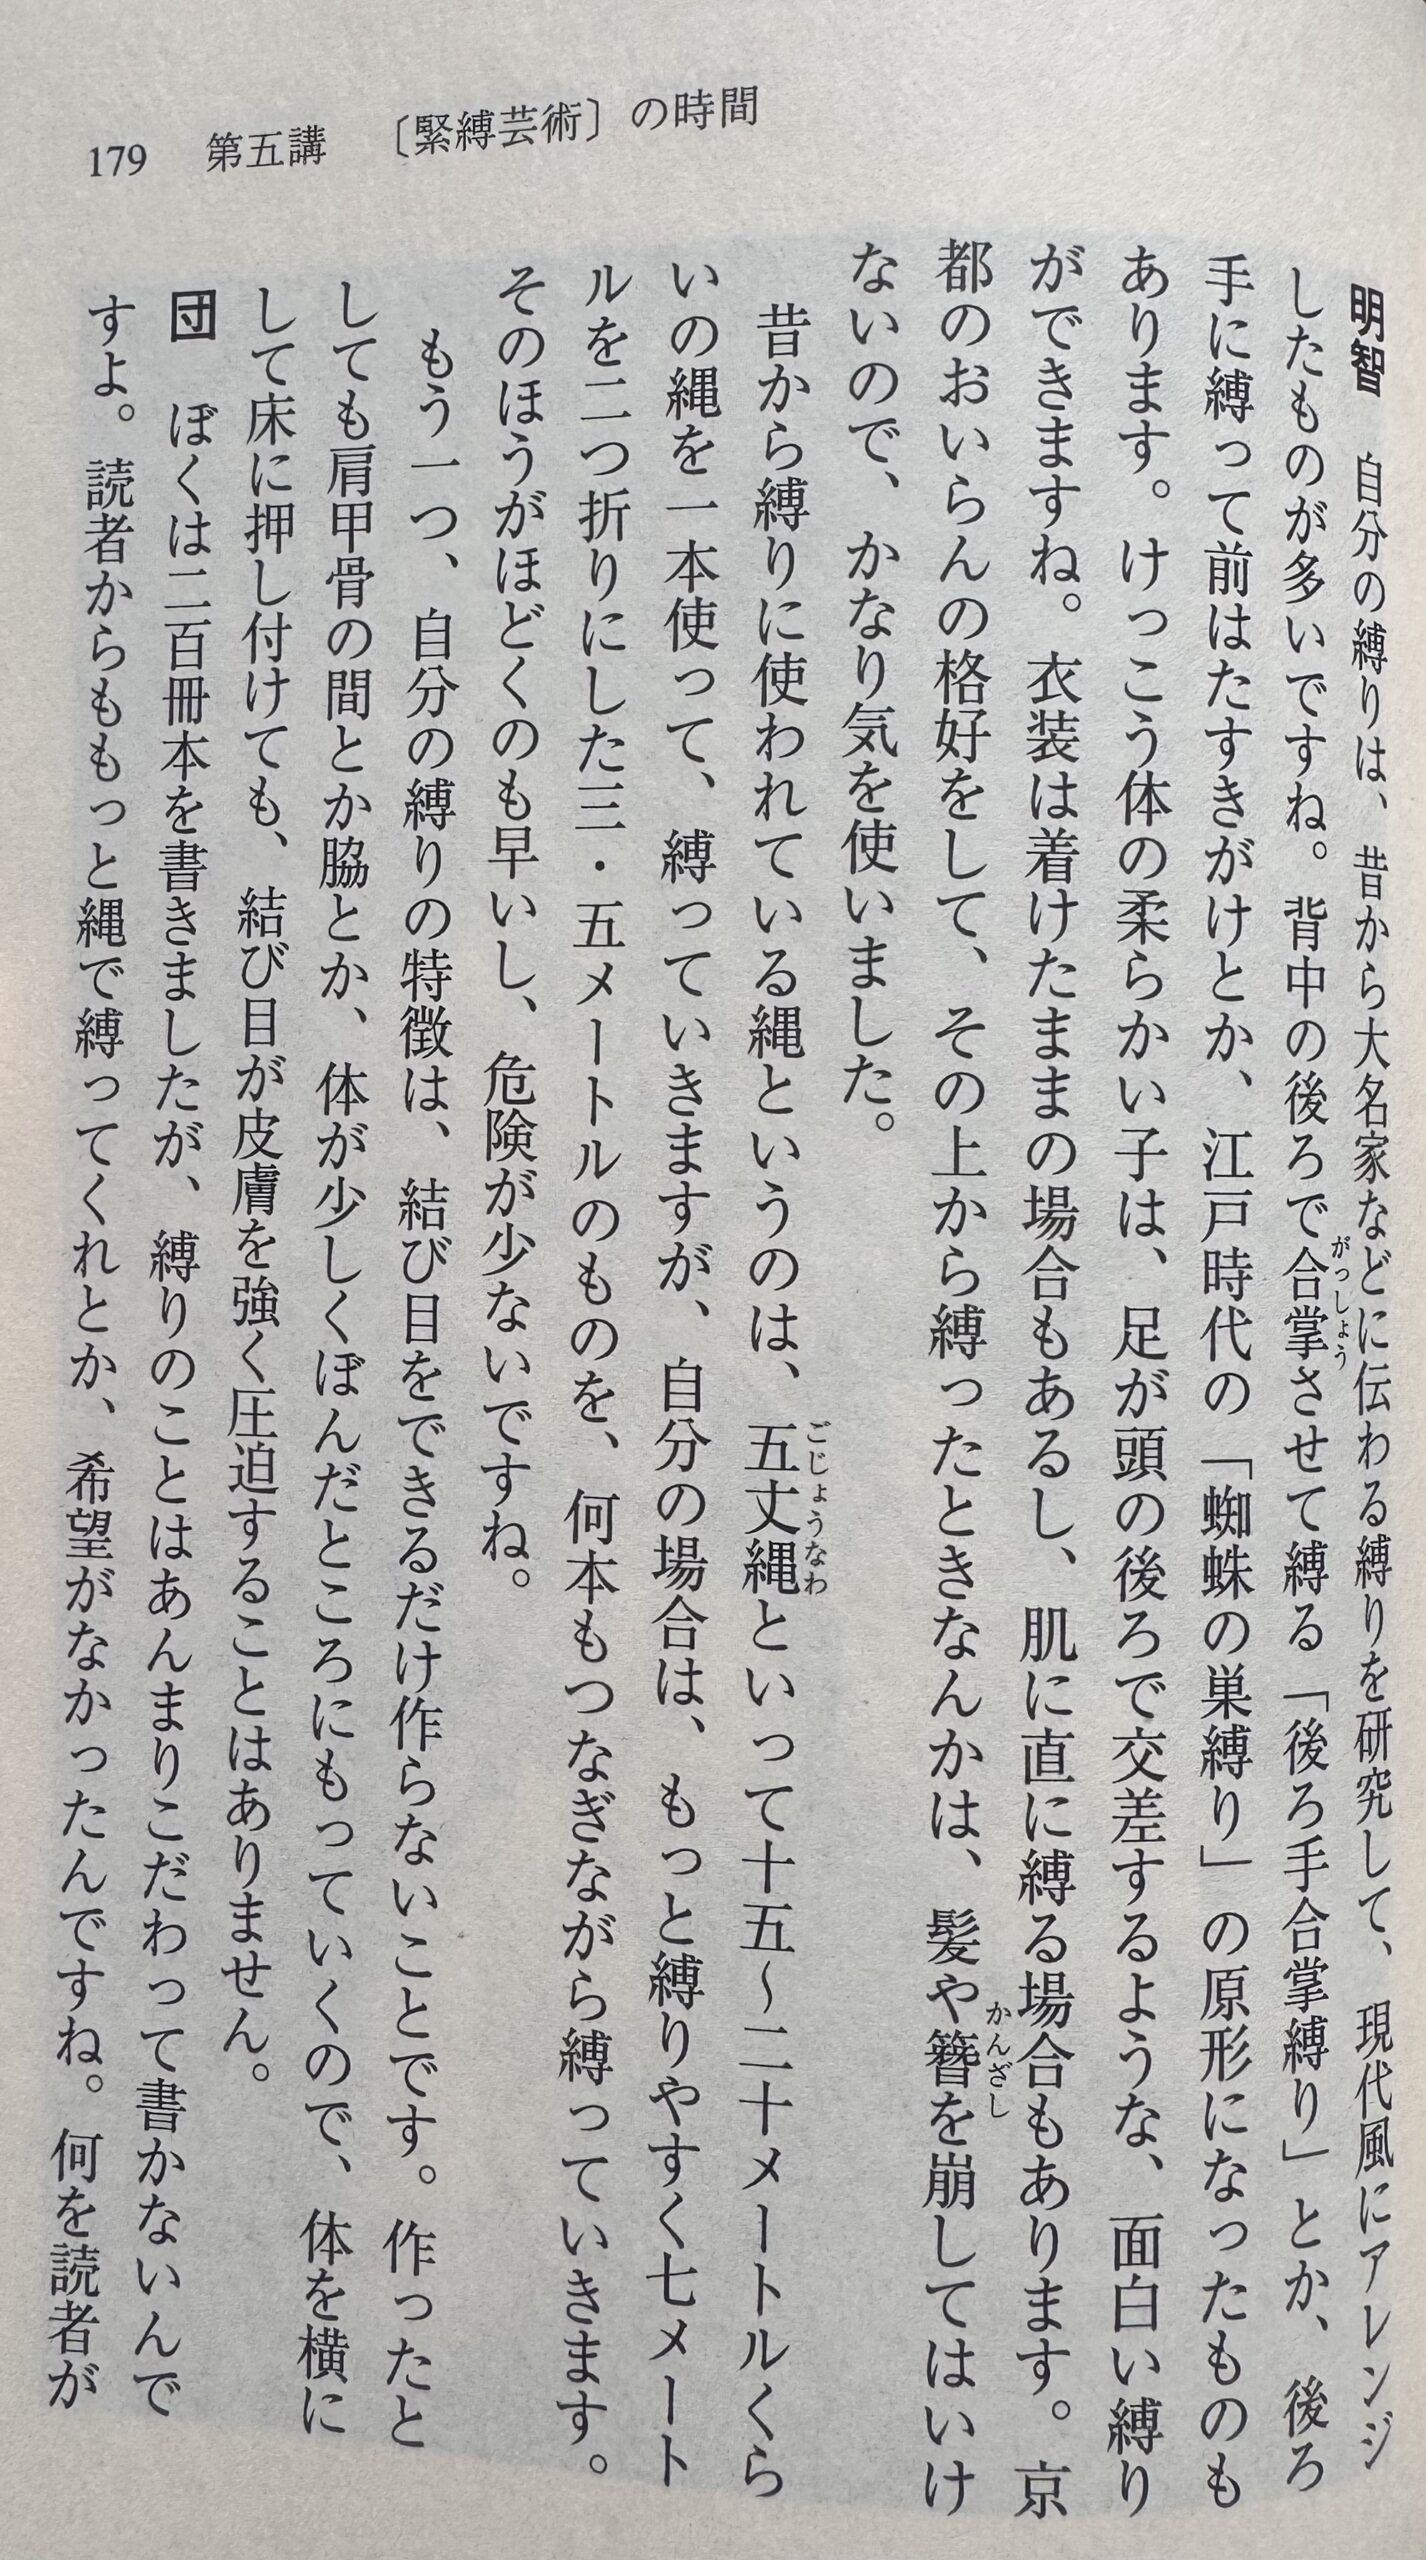 179　第五講　〔緊縛芸術〕の時間
明智　自分の縛りは、昔から大名家などに伝わる縛りを研究して、現代風にアレンジ
したものが多いですね。背中の後ろで合掌させて縛る「後ろ手合掌縛り」とか、後ろ
手に縛って前はたすきがけとか、江戸時代の「蜘蛛の巣縛り」の原形になったものも
あります。けっこう体の柔らかい子は、足が頭の後ろで交差するような、面白い縛り
ができますね。衣装は着けたままの場合もあるし、肌に直に縛る場合もあります。京
都のおいらんの格好をして、その上から縛ったときなんかは、髪や簪を崩してはいけ
ないので、かなり気を使いました。
　昔から縛りに使われている縄というのは、五丈縄といって十五〜二十メートルくら
いの縄を一本使って、縛っていきますが、自分の場合は、もっと縛りやすく七メート
ルを二つ折りにした三・五メートルのものを、何本もつなぎながら縛っていきます。
そのほうがほどくのも早いし、危険が少ないですね。
　もう一つ、自分の縛りの特徴は、結び目をできるだけ作らないことです。作ったと
しても肩甲骨の間とか脇とか、体が少しくぼんだところにもっていくので、体を横に
して床に押し付けても、結び目が皮膚を強く圧迫することはありません。
団　ぼくは二百冊本を書きましたが、縛りのことはあんまりこだわって書かないんで
すよ。読者からももっと縄で縛ってくれとか、希望がなかったんですね。何を読者が